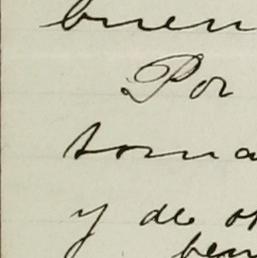 buen
Por
toma
y de o
ben